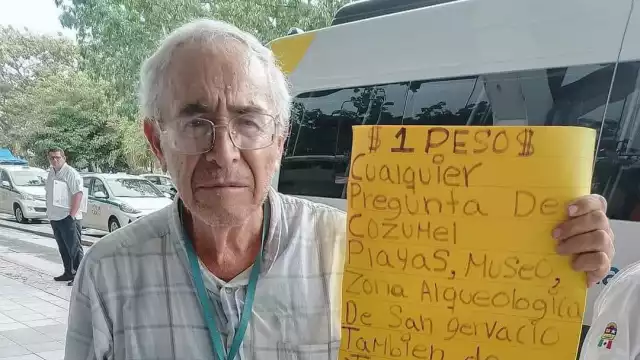 $ 1 PESO $
Cualquier
Pregunta De
Cozumel
Playas, Museo,
Zona Alqueologica
De San gervacio
También de